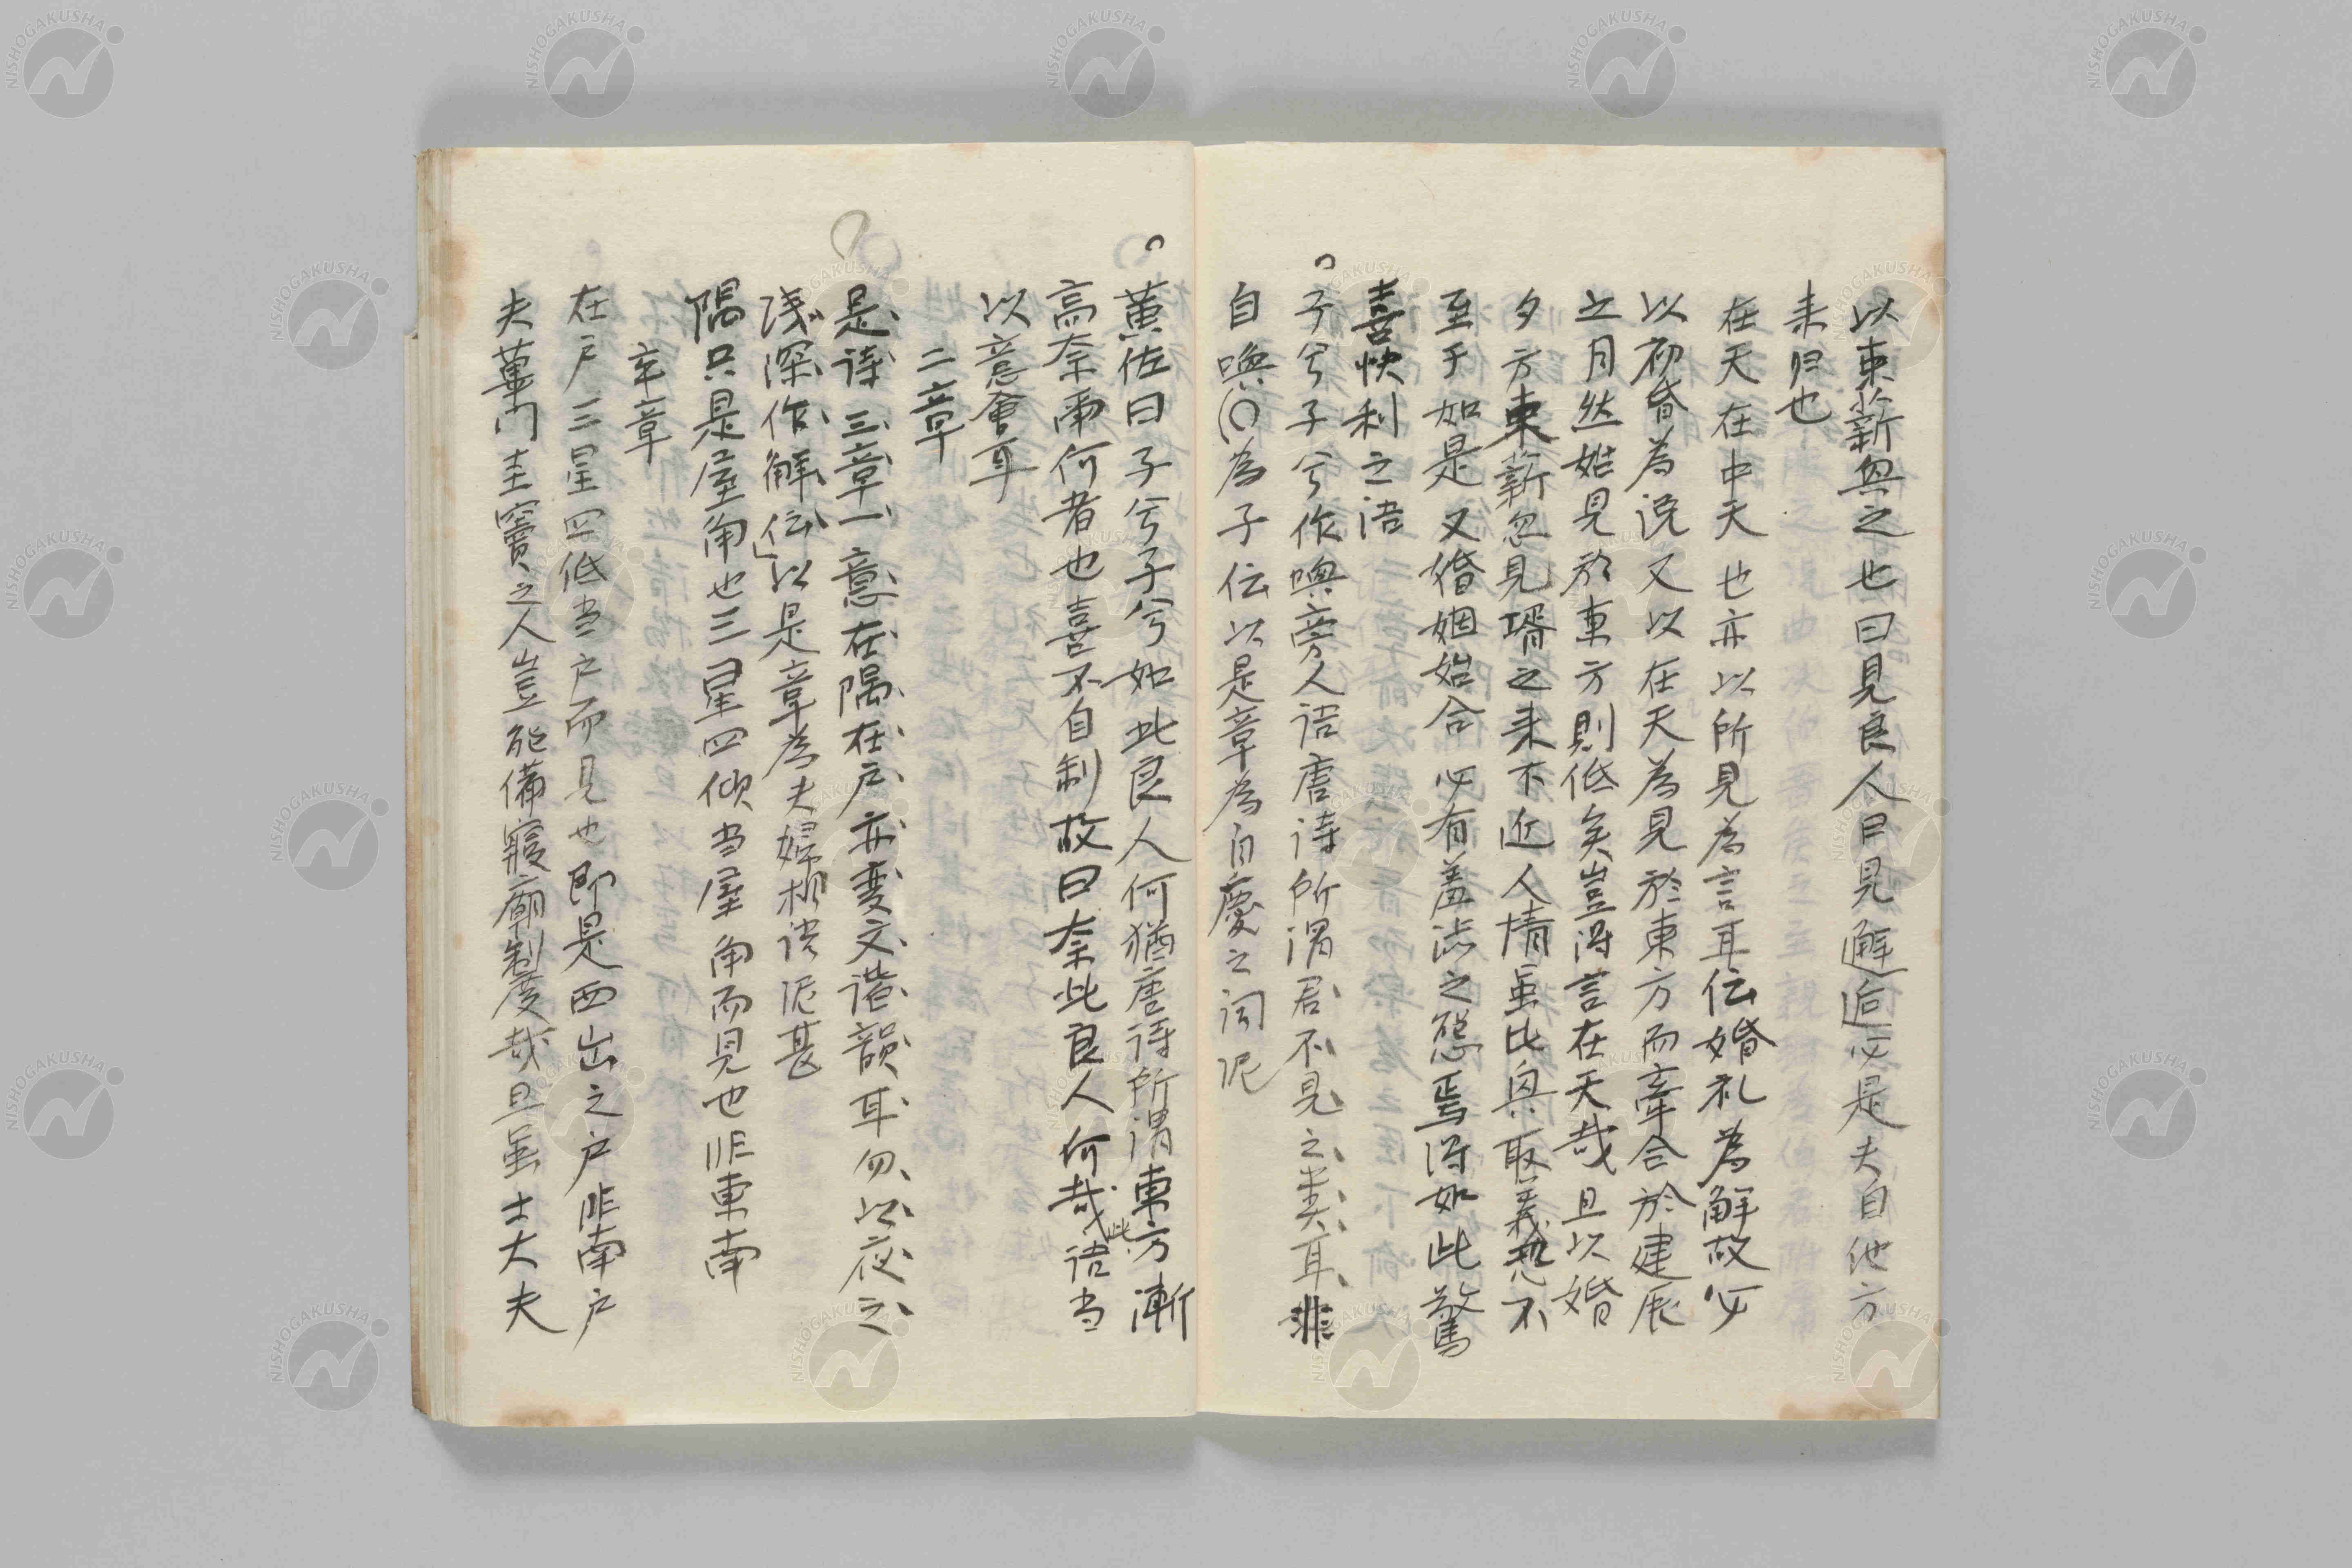 以束薪興之也曰見良人曰見邂逅必是夫自他方
来归也
在天在中天也亦以所見為言耳伝婚礼為解故必
以初昏為説又以在天為見於東方而牽合於建辰
之月然始見於東方則低矣豈得言在天哉且以婚
夕方束薪忽見壻之来不近人情虽比興取義恐不
至于如是又婚姻始合必有羞渋之態焉得如此驚
喜快利之语
子兮子兮作喚旁人语唐诗所谓君不見之类耳非
自喚〇為子伝以是章為自慶之词泥
黄佐曰子兮子兮如此良人何猶唐诗所谓東方漸
高奈爾何者也喜不自制故曰奈此良人何哉此语当
以意會耳
二章
是诗三章一意在隅在户亦变文谐韻耳勿以夜之
浅深作解伝以是章為夫婦相语泥甚
隅只是屋角也三星四傾当屋角而見也非東南
卒章
在户三星四低当户而見也即是西出之户非南户
夫蓽门圭竇之人豈能備寢廟制度哉且虽士大夫
NISHOGAKUSHA